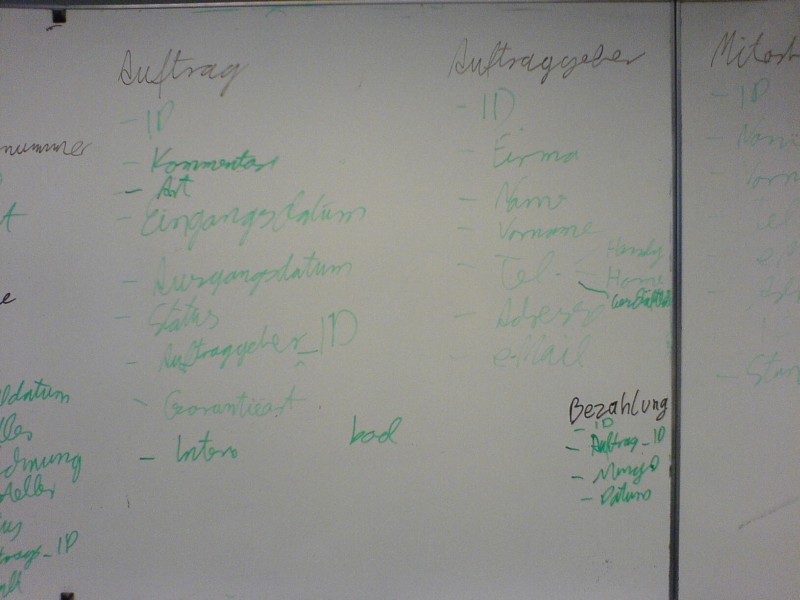 nummer
ldatum
dnung
steller
trags_ID
Auftrag
- ID
- Kommentar
- Art
- Eingangsdatum
- Ausgangsdatum
- Status
- Auftraggeber_ID
- Garantieart
- Intern
bool
Auftraggeber
- ID
- Firma
- Name
- Vorname
- Tel.
- Handy
- Home
- Adresse
- eMail
Bezahlung
- ID
- Auftrag_ID
- Menge
- Datum
Mitarb
- ID
- Name